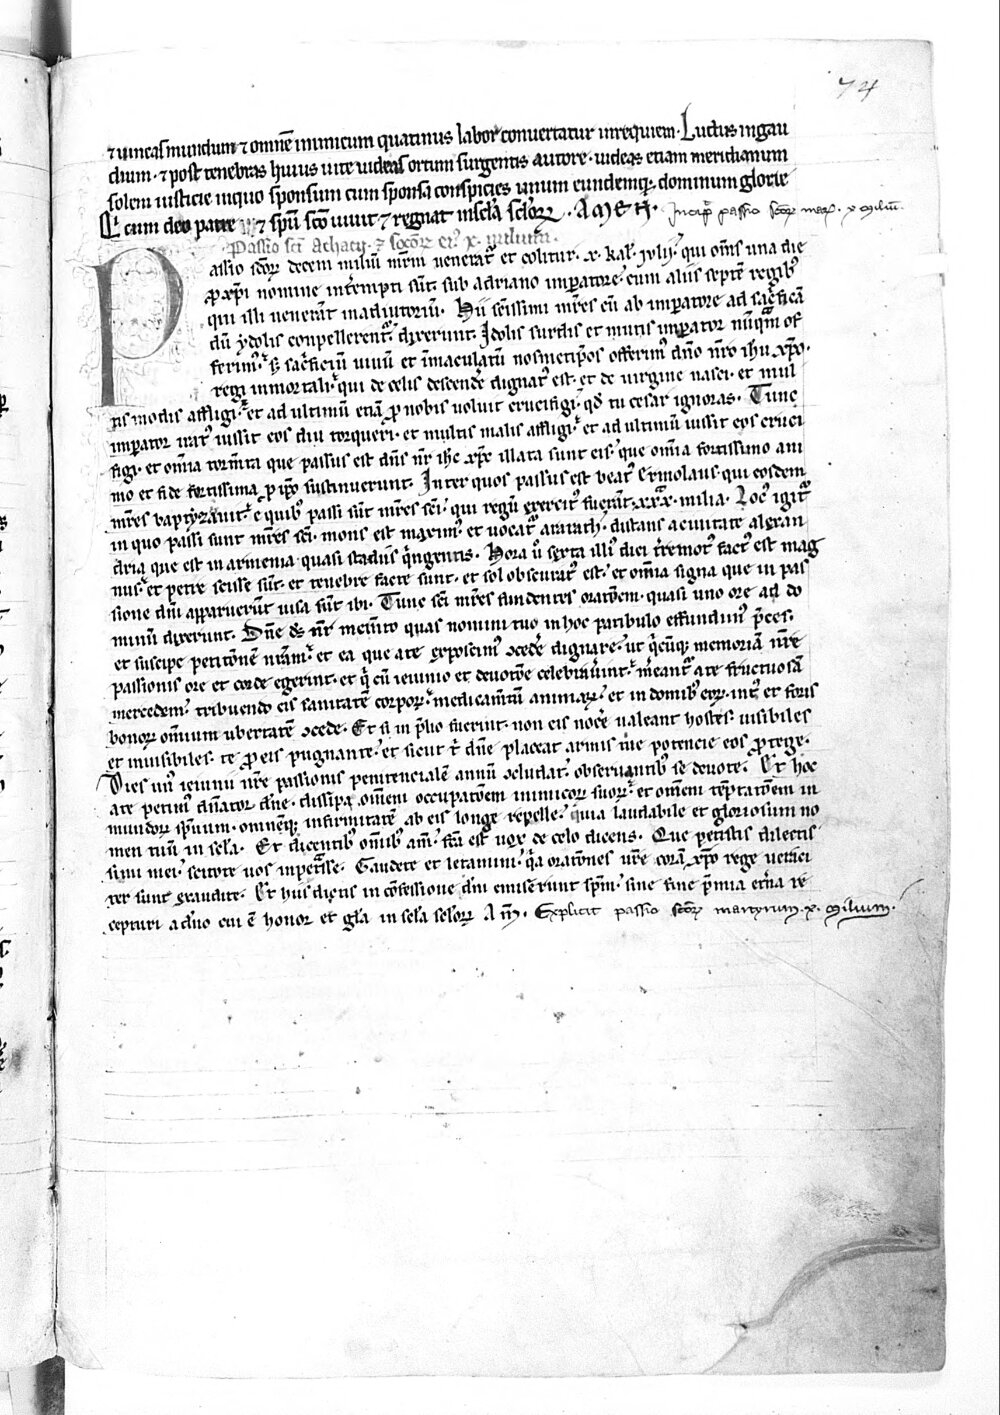 74
⁊ uincas mundum ⁊ omnē inimicum quatinus labor conuertatur in requiem. Luctus in gau
dium. ⁊ post tenebras huius uite uideas ortum surgentis autore. uideas etiam meridianum
solem iusticie in quo sponsum cum sponsa conspicies unum eundemqꝫ dominum glorie
Qͥ cum deo patre ⁊ spū sc̄o uiuit ⁊ regnat in sc̄la sc̄lorꝝ. AMEN. Incipͭ passio sc̄orꝝ mar. x miliū.
Passio sc̄i Achatii. ⁊ socioꝝ eiꝰ x. milium.
Passio sc̄orꝝ decem miliū mr̄m ueneratᷣ et colitur. x. kal̄. iulij. qui om̄s una die
ꝓ xp̄i nomine int̄empti sūt. sub adriano imꝑatore. cum aliis septē regibꝰ
qui illi uenerāt in adiutoriū. Hii sc̄issimi mr̄es cū ab imꝑatore ad sac̄ficā
dū ydolis conpellerentᷣ. dixerunt. Idolis surdis et mutis imꝑator nūqᷓm of
ferimꝰ. sꝫ sac̄ficiū uiuū et īmaculatū nosmetip̄os offerimꝰ dn̄o nr̄o ih̄u xp̄o.
regi inmortali. qui de celis descende͛ dignatꝰ est. et de uirgine nasci. et mul
tis modis affligi. et ad ultimū etiā ꝓ nobis uoluit crucifigi. qd̄ tu cesar ignoras. Tunc
imꝑator iratꝰ iussit eos diu torqueri. et multis malis affligi. et ad ultimū iussit eos cruci
figi. et om̄ia torm̄ta que passus est dn̄s nr̄ ih̄c xp̄c illata sunt eis. que om̄ia fortissimo ani
mo et fide fortissima ꝓ ip̄o sustinuerunt. Inter quos passus est beatꝰ Ermolaus. qui eosdem
mr̄es baptyzauit. e qͥbus passi sūt mr̄es sc̄i. qui regū exercitꝰ fuerāt xxx. milia. Locꝰ igitᷣ
in quo passi sunt mr̄es sc̄i. mons est maximꝰ. et uocatᷣ ararath. distans a ciuitate alexan
dria que est in armenia quasi stadiis qͥngentis. Hora ū sexta illiꝰ diei t̄remotꝰ factꝰ est mag
nus. et petre scisse sūt. et tenebre facte sunt. et sol obscuratꝰ est. et om̄ia signa que in pas
sione dn̄i apparuerūt uisa sūt ibi. Tunc sc̄i mr̄es fundentes orat̄oem. quasi uno ore ad do
minū dixerunt. Dn̄e dꝫ nr̄ mem̄to quas nomini tuo in hoc patibulo effundimꝰ p̄ces.
et suscipe petit̄onē nr̄am. et ea que a te exposcimꝰ ꝯcede͛ dignare. ut qͥcūqꝫ memoriā nr̄e
passionis ore et corde egerint. et qͥ cū ieiunio et deuot̄oe celebrauerint. m̄eantᷣ a te fructuosā
mercedem. tribuendo eis sanitatē corporꝝ. medicam̄tum animarꝝ. et in domibꝰ eorꝝ intꝰ et foris
bonorꝝ omnium ubertatē ꝯcede. Et si in p̄lio fuerint. non eis noce͛ ualeant hostes. uisibiles
et inuisibiles. te ꝓ eis pugnante. et sicut t̄ dn̄e placeat armis tue potencie eos ꝓtege.
Dies unꝰ ieiunii nr̄e passionis penitencialē annū ꝯcludat. obseruantibꝰ se deuote. Et hoc
a te petimꝰ dn̄ator dn̄e. dissipa om̄em occupat̄oem inimicorꝝ suorꝝ. et om̄em tēptat̄oem in
mundorꝝ spirituum. omnēqꝫ infirmitatē ab eis longe repelle. quia laudabile et gloriosum no
men tuū in sc̄la. Et dicentibꝰ om̄ibꝰ am̄. f̄ca est uox de celo dicens. Que petistis dilectis
simi mei. scitote uos inpet̄sse. Gaudete et letamini. qͥa orat̄ones ur̄e corā xp̄o rege ueraci
ter sunt exaudite. Et hiis dictis in ꝯfessione dn̄i emiserunt spm̄. sine fine p̄mia et̄na re
cepturi a dn̄o cui ē honor et gl̄a in sc̄la sc̄lorꝝ. Am̄. Explicit passio sc̄orꝝ martyrum. x. milium.